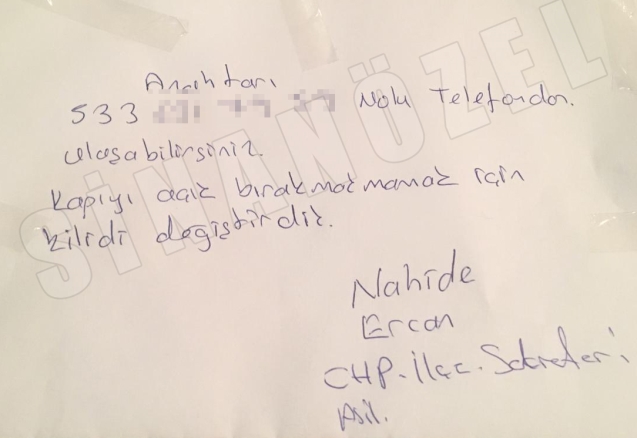 Anahtarı
533 Nolu Telefondan.
ulaşabilirsiniz.
Kapıyı açık bırakmakmamak için
kilidi değiştirdik.
Nahide
Ercan
CHP. İlçe. Sekreteri
Asil.
SİNAN ÖZEL